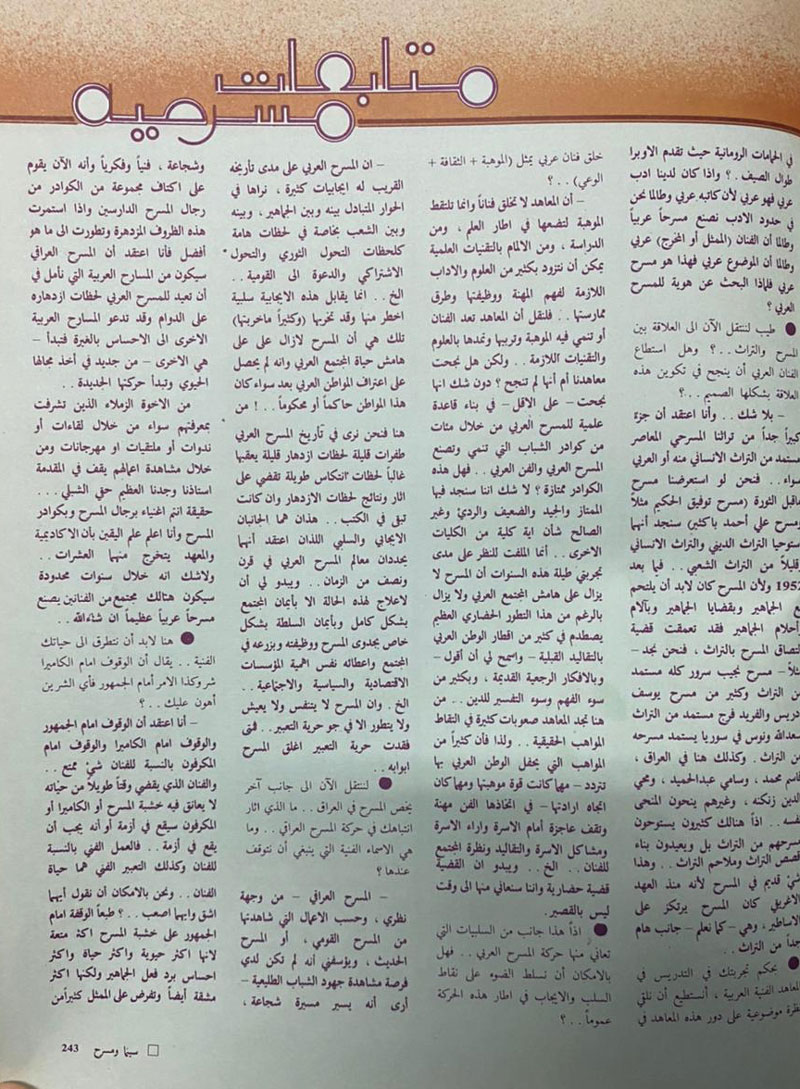 متابعات
مسرحيه
في الحمامات الرومانية حيث تقدم الاوبرا
طوال الصيف . ؟ واذا كان لدينا ادب
عربي فهو عربي لأن كاتبه عربي وطالما نحن
في حدود الادب نصنع مسرحاً عربياً
وطالما أن الفنان (الممثل أو المخرج) عربي
وطالما أن الموضوع عربي فهذا هو مسرح
عربي فلماذا البحث عن هوية للمسرح
العربي ؟
● طيب لننتقل الآن الى العلاقة بين
المسرح والتراث . . ؟ وهل استطاع
الفنان العربي أن ينجح في تكوين هذه
العلاقة بشكلها الصميم . . ؟
– بلا شك . . وأنا اعتقد أن جزءً
كبيراً جداً من تراثنا المسرحي المعاصر
مستمد من التراث الانساني منه أو العربي
سواء . . فنحن لو استعرضنا مسرح
ماقبل الثورة (مسرح توفيق الحكيم مثلاً
ومسرح علي أحمد باكثير) سنجد أنهما
استوحيا التراث الديني والتراث الانساني
وقليلاً من التراث الشعبي . . فيما بعد
1952 ولأن المسرح كان لابد أن يلتحم
مع الجماهير وبقضايا الجماهير وبآلام
وأحلام الجماهير فقد تعمقت قضية
التصاق المسرح بالتراث ، فنحن نجد –
مثلاً – مسرح نجيب سرور كله مستمد
من التراث وكثير من مسرح يوسف
ادريس والفريد فرج مستمد من التراث
وسعدالله ونوس في سوريا يستمد مسرحه
من التراث . وكذلك هنا في العراق ،
قاسم محمد ، وسامي عبدالحميد ، ومحي
الدين زنكنه ، وغيرهم ينحون المنحى
نفسه . . اذاً هنالك كثيرون يستوحون
مسرحهم من التراث بل ويعيدون بناء
قصص التراث وملاحم التراث . . وهذا
شيء قديم في المسرح لأنه منذ العهد
الاغريقي كان المسرح يرتكز على
الاساطير ، وهي – كما نعلم – جانب هام
جداً من التراث . .
● بحكم تجربتك في التدريس في
المعاهد الفنية العربية ، أنستطيع أن نلقي
نظرة موضوعية على دور هذه المعاهد في
خلق فنان عربي يمثل (الموهبة + الثقافة +
الوعي) . . ؟
– أن المعاهد لا تخلق فناناً وانما تلتقط
الموهبة لتضعها في اطار العلم ، ومن
الدراسة ، ومن الالمام بالتقنيات العلمية
يمكن أن نتزود بكثير من العلوم والاداب
اللازمة لفهم المهنة ووظيفتها وطرق
ممارستها . . فلنقل أن المعاهد تعد الفنان
أو تنمي فيه الموهبة وتربيها وتمدها بالعلوم
والتقنيات اللازمة . . ولكن هل نجحت
معاهدنا أم أنها لم تنجح ؟ دون شك انها
نجحت – على الاقل – في بناء قاعدة
علمية للمسرح العربي من خلال مئات
من كوادر الشباب التي تنمي وتصنع
المسرح العربي والفن العربي . . فهل هذه
الكوادر ممتازة ؟ لا شك اننا سنجد فيها
الممتاز والجيد والضعيف والردي وغير
الصالح شأن اية كلية من الكليات
الاخرى . . أنما الملفت للنظر على مدى
تجربتي طيلة هذه السنوات أن المسرح لا
يزال على هامش المجتمع العربي ولا يزال
بالرغم من هذا التطور الحضاري العظيم
يصطدم في كثير من اقطار الوطن العربي
بالتقاليد القبلية – واسمح لي أن أقول –
وبالافكار الرجعية القديمة ، وبكثير من
سوء الفهم وسوء التفسير للدين . . من
هنا تجد المعاهد صعوبات كثيرة في التقاط
المواهب الحقيقية . . ولذا فأن كثيراً من
المواهب التي يحفل الوطن العربي بها
تتردد – مهما كانت قوة موهبتها ومهما كان
اتجاه ارادتها – في اتخاذها الفن مهنة
وتقف عاجزة أمام الاسرة واراء الاسرة
ومشاكل الاسرة والتقاليد ونظرة المجتمع
للفنان . . الخ . . ويبدو ان القضية
قضية حضارية واننا سنعاني منها الى وقت
ليس بالقصير .
● اذاً هذا جانب من السلبيات التي
تعاني منها حركة المسرح العربي . . فهل
بالامكان أن نسلط الضوء على نقاط
السلب والايجاب في اطار هذه الحركة
عموماً . . ؟
– ان المسرح العربي على مدى تأريخه
القريب له ايجابيات كثيرة ، نراها في
الحوار المتبادل بينه وبين الجماهير ، وبينه
وبين الشعب بخاصة في لحظات هامة
كلحظات التحول الثوري والتحول
الاشتراكي والدعوة الى القومية . .
الخ . . انما يقابل هذه الايجابية سلبية
اخطر منها وقد تخربها (وكثيراً ماخربتها)
تلك هي أن المسرح لازال على على
هامش حياة المجتمع العربي وانه لم يحصل
على اعتراف المواطن العربي بعد سواء كان
هذا المواطن حاكماً أو محكوماً . . ! من
هنا فنحن نرى في تأريخ المسرح العربي
طفرات قليلة لحظات ازدهار قليلة يعقبها
غالباً لحظات انتكاس طويلة تقضي على
اثار ونتائج لحظات الازدهار وان كانت
تبقى في الكتب . . هذان هما الجانبان
الايجابي والسلبي اللذان اعتقد أنهما
يحددان معالم المسرح العربي في قرن
ونصف من الزمان . . ويبدو لي أن
لاعلاج لهذه الحالة الا بأيمان المجتمع
بشكل كامل وبأيمان السلطة بشكل
خاص بجدوى المسرح ووظيفته وبزرعه في
المجتمع واعطائه نفس اهمية المؤسسات
الاقتصادية والسياسية والاجتماعية . .
الخ . وان المسرح لا يتنفس ولا يعيش
ولا يتطور الا في جو حرية التعبير . . فمتى
فقدت حرية التعبير اغلق المسرح
ابوابه . .
● لننتقل الآن الى جانب آخر
يخص المسرح في العراق . . ما الذي اثار
انتباهك في حركة المسرح العراقي . . وما
هي الاسماء الفنية التي ينبغي أن نتوقف
عندها ؟
– المسرح العراقي – من وجهة
نظري ، وحسب الاعمال التي شاهدتها
من المسرح القومي ، أو المسرح
الحديث ، ويؤسفني أنه لم تكن لدي
فرصة مشاهدة جهود الشباب الطليعية –
أرى أنه يسير مسيرة شجاعة ،
وشجاعة ، فنياً وفكرياً وأنه الآن يقوم
على اكتاف مجموعة من الكوادر من
رجال المسرح الدارسين واذا استمرت
هذه الظروف المزدهرة وتطورت الى ما هو
أفضل فأنا اعتقد أن المسرح العراقي
سيكون من المسارح العربية التي نأمل في
أن تعيد للمسرح العربي لحظات ازدهاره
على الدوام وقد تدعو المسارح العربية
الاخرى الى الاحساس بالغيرة فتبدأ –
هي الاخرى – من جديد في أخذ مجالها
الحيوي وتبدأ حركتها الجديدة . .
من الاخوة الزملاء الذين تشرفت
بمعرفتهم سواء من خلال لقاءات أو
ندوات أو ملتقيات او مهرجانات ومن
خلال مشاهدة اعمالهم يقف في المقدمة
استاذنا وجدنا العظيم حقي الشبلي . . .
حقيقة انتم اغنياء برجال المسرح وبكوادر
المسرح وأنا اعلم علم اليقين بأن الاكاديمية
والمعهد يتخرج منهما العشرات . .
ولاشك انه خلال سنوات محدودة
سيكون هنالك مجتمع من الفنانين يصنع
مسرحاً عربياً عظيماً ان شاءالله . .
● هنا لابد أن نتطرق الى حياتك
الفنية . . يقال أن الوقوف امام الكاميرا
شر وكذا الامر أمام الجمهور فأي الشرين
أهون عليك . . ؟
– أنا اعتقد أن الوقوف امام الجمهور
والوقوف امام الكاميرا والوقوف امام
المكرفون بالنسبة للفنان شيء ممتع . .
والفنان الذي يقضي وقتاً طويلاً من حياته
لا يعانق فيه خشبة المسرح أو الكاميرا أو
المكرفون سيقع في أزمة أو أنه يجب أن
يقع في أزمة . . فالعمل الفني بالنسبة
للفنان وكذلك التعبير الفني هما حياة
الفنان . . ونحن بالامكان أن نقول أيهما
اشق وايهما اصعب . . ؟ طبعاً الوقفة امام
الجمهور على خشبة المسرح اكثر متعة
لانها اكثر حيوية واكثر حياة واكثر
احساس برد فعل الجماهير ولكنها اكثر
مشقة أيضاً وتفرض على الممثل كثيراً من
□ سينما ومسرح 243